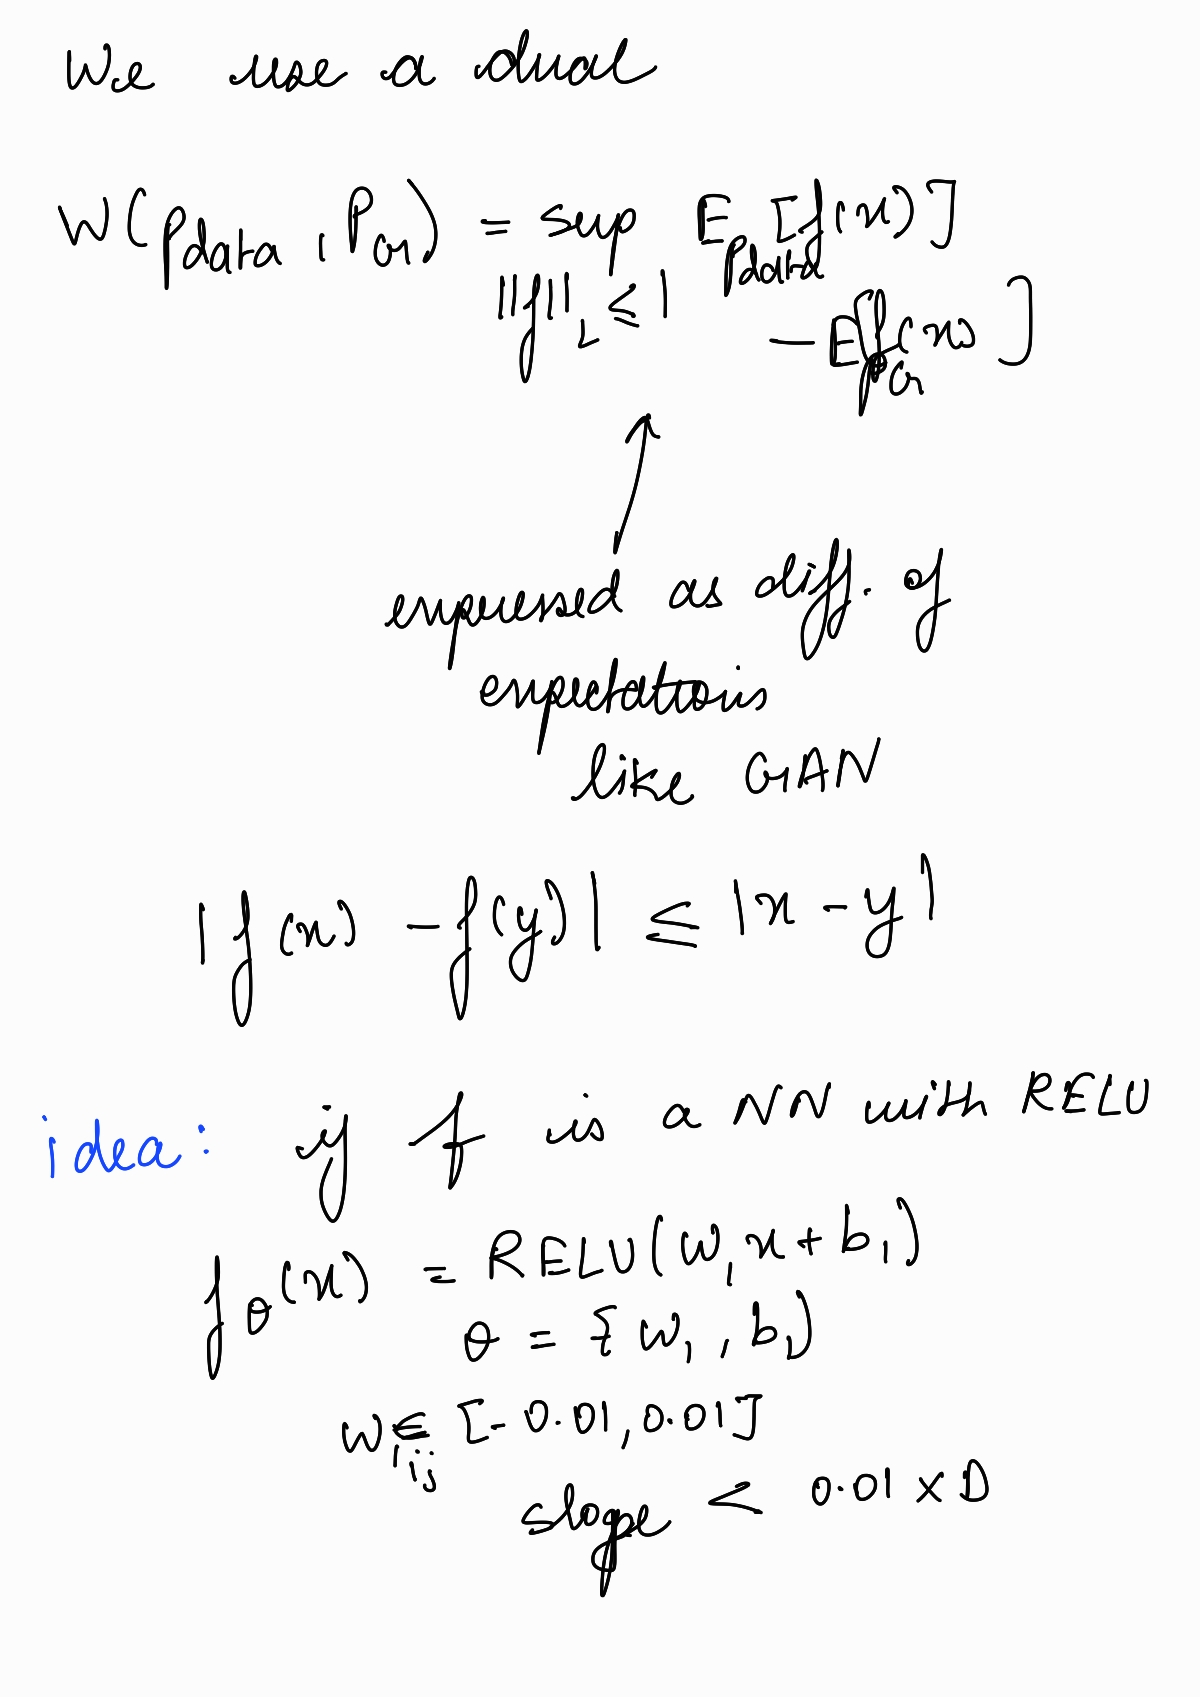 We use a dual
W(Pdata, PG) = sup E [f(x)]
||f||L ≤ 1 Pdata
- E f(x) ]
PG
expressed as diff. of
expectations
like GAN
|f(x) - f(y)| ≤ |x - y|
idea: if f is a NN with RELU
fθ(x) = RELU(W1x + b1)
θ = {W1, b1)
W1ij ∈ [-0.01, 0.01]
slope < 0.01 x D